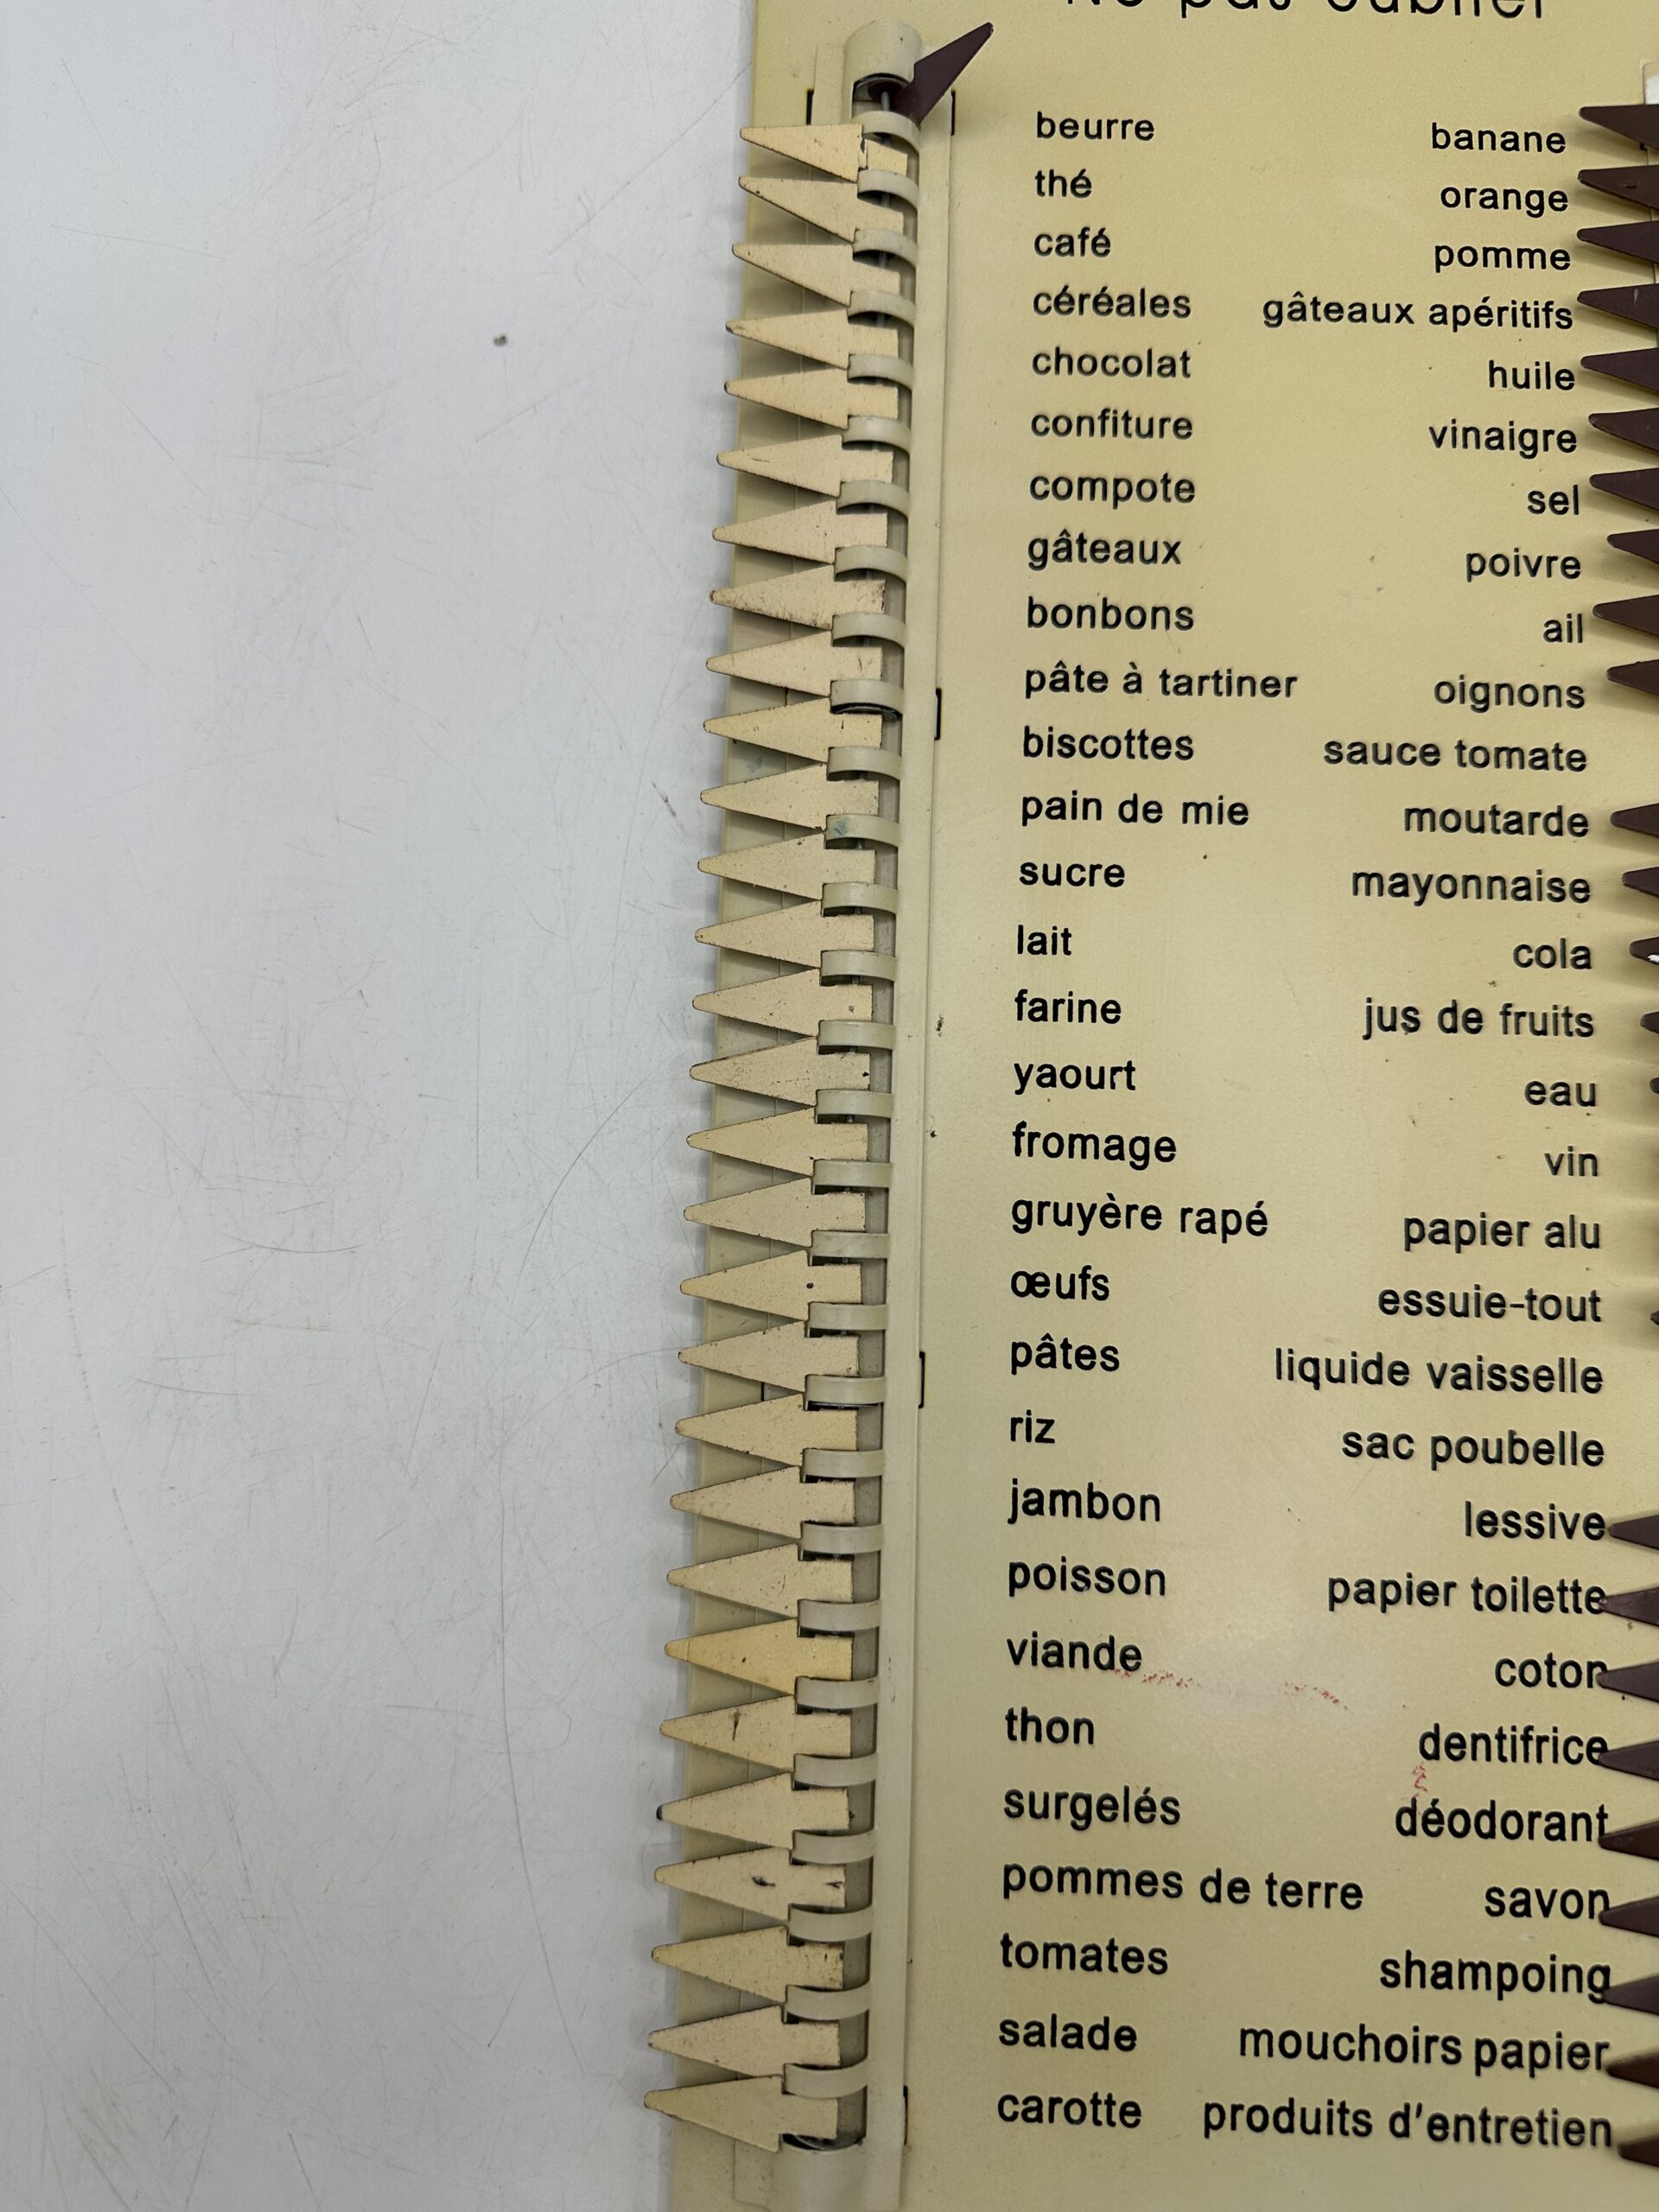 Ne pas oublier
beurre banane
thé orange
café pomme
céréales gâteaux apéritifs
chocolat huile
confiture vinaigre
compote sel
gâteaux poivre
bonbons ail
pâte à tartiner oignons
biscottes sauce tomate
pain de mie moutarde
sucre mayonnaise
lait cola
farine jus de fruits
yaourt eau
fromage vin
gruyère rapé papier alu
œufs essuie-tout
pâtes liquide vaisselle
riz sac poubelle
jambon lessive
poisson papier toilette
viande coton
thon dentifrice
surgelés déodorant
pommes de terre savon
tomates shampoing
salade mouchoirs papier
carotte produits d'entretien